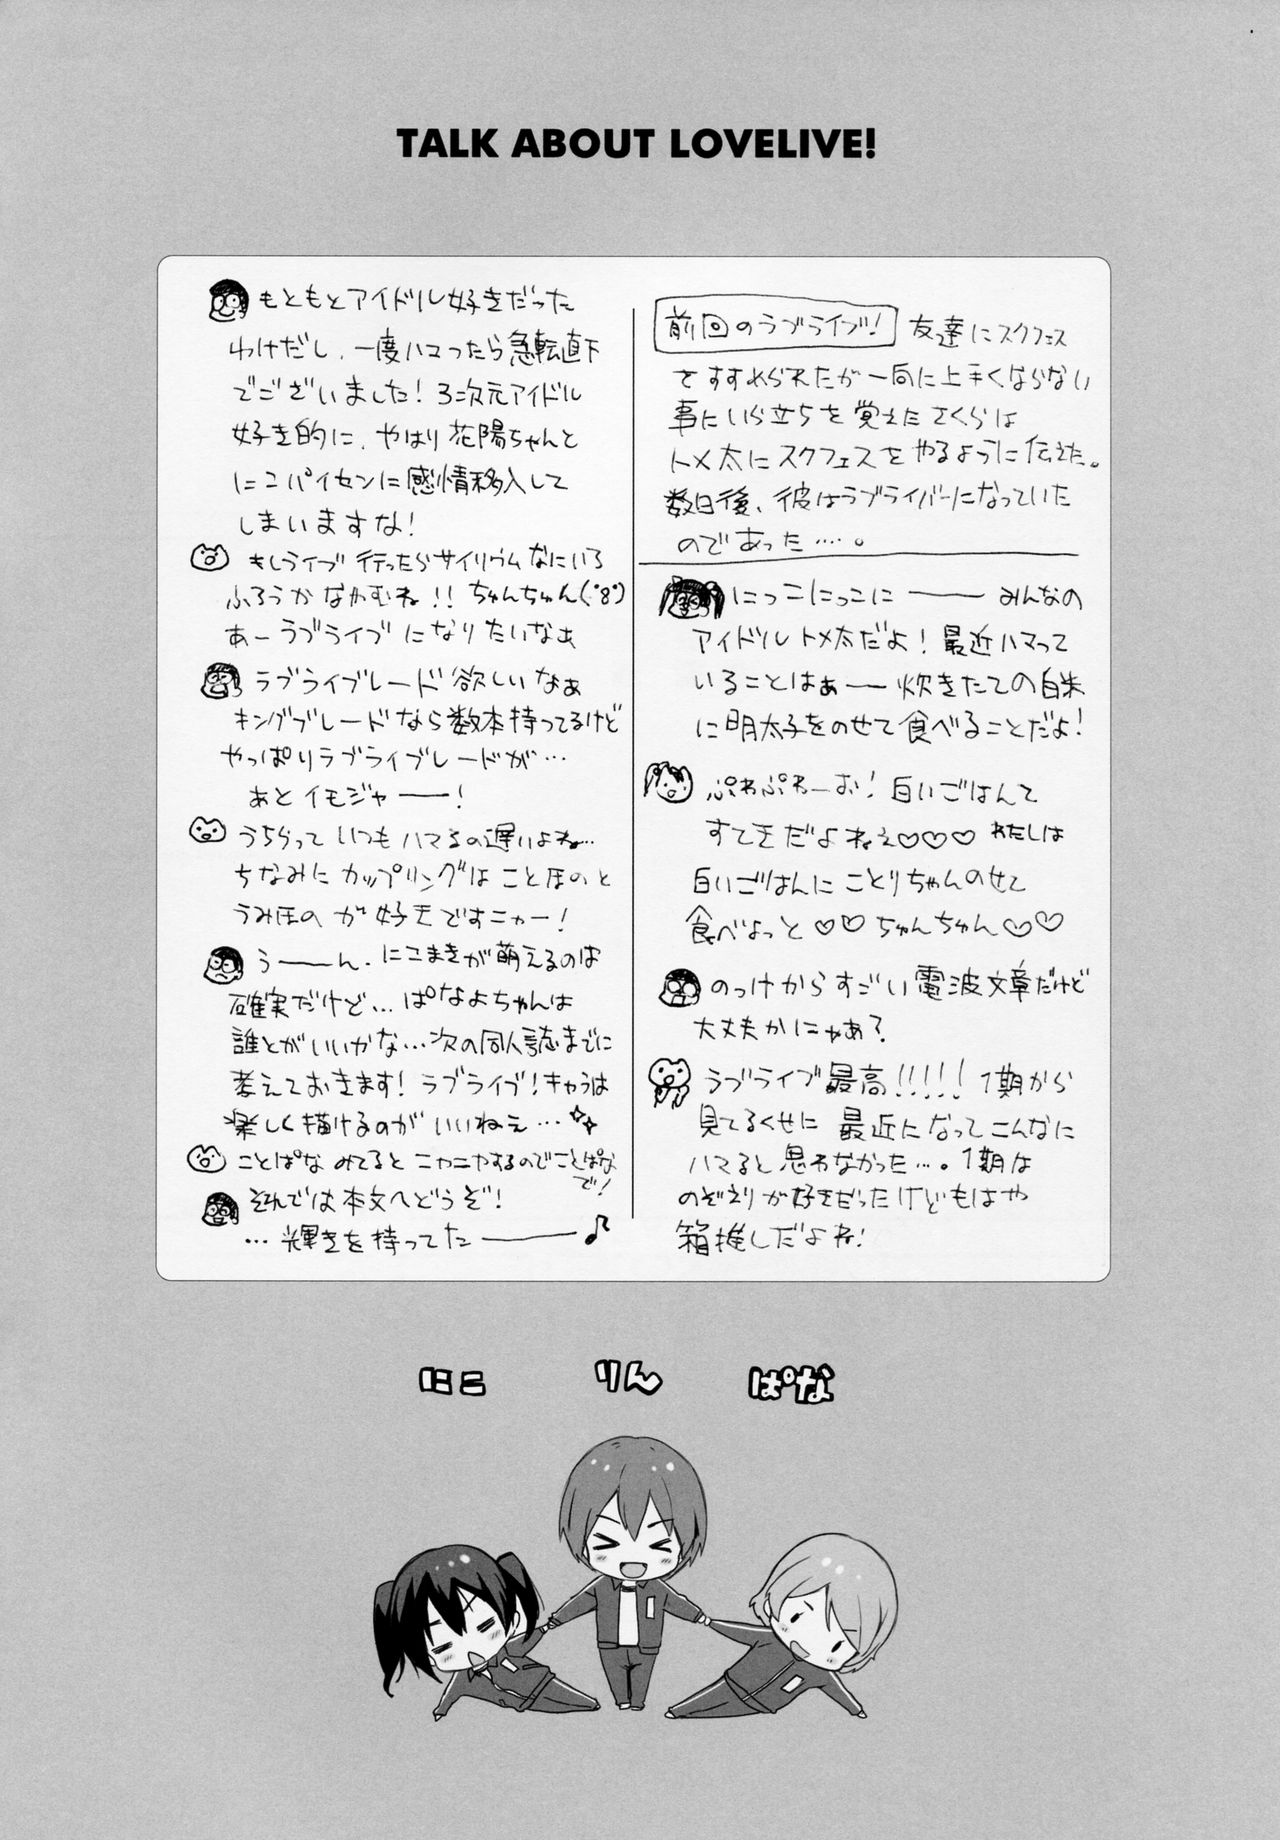 TALK ABOUT LOVELIVE!
前回のラブライブ! 友達にスクフェス
をすすめられたが一向に上手くならない
事にいら立ちを覚えたさくらは
トメ太にスクフェスをやるように伝えた。
数日後、彼はラブライバーになっていた
のであった……。
にっこにっこに——— みんなの
アイドルトメ太だよ!最近ハマって
いることはぁ——炊きたての白米
に明太子をのせて食べることだよ!
ぷわぷわーお!白いごはんて
すてきだよねぇ♡♡♡ わたしは
白いごはんにことりちゃんのせて
食べよっと♡♡ちゅんちゅん♡♡
のっけからすごい電波文章だけど
大丈夫かにゃあ?
ラブライブ最高!!!!! 1期から
見てるくせに 最近になってこんなに
ハマると思わなかった…。1期は
のぞえりが好きだったけどもはや
箱推しだよね!
もともとアイドル好きだった
わけだし、一度ハマったら急転直下
でございました!3次元アイドル
好き的に、やはり花陽ちゃんと
にこパイセンに感情移入して
しまいますな!
もしライブ行ったらサイリウムなにいろ
ふろうかなやむね!!ちゅんちゅん(・8・)
あーラブライブになりたいなぁ
ラブライブレード欲しいなぁ
キングブレードなら数本持ってるけど
やっぱりラブライブレードが…
あとイモジャ——!
うちらっていつもハマるの遅いよね…
ちなみにカップリングはことほのと
うみほのが好きですニャー!
う——ん、にこまきが萌えるのは
確実だけど…ぱなよちゃんは
誰とがいいかな…次の同人誌までに
考えておきます!ラブライブ!キャラは
楽しく描けるのがいいねぇ…
ことぱなみてるとニヤニヤするのでことぱな
で!
それでは本文へどうぞ!
…輝きを持ってた———♪
にこ りん ぱな